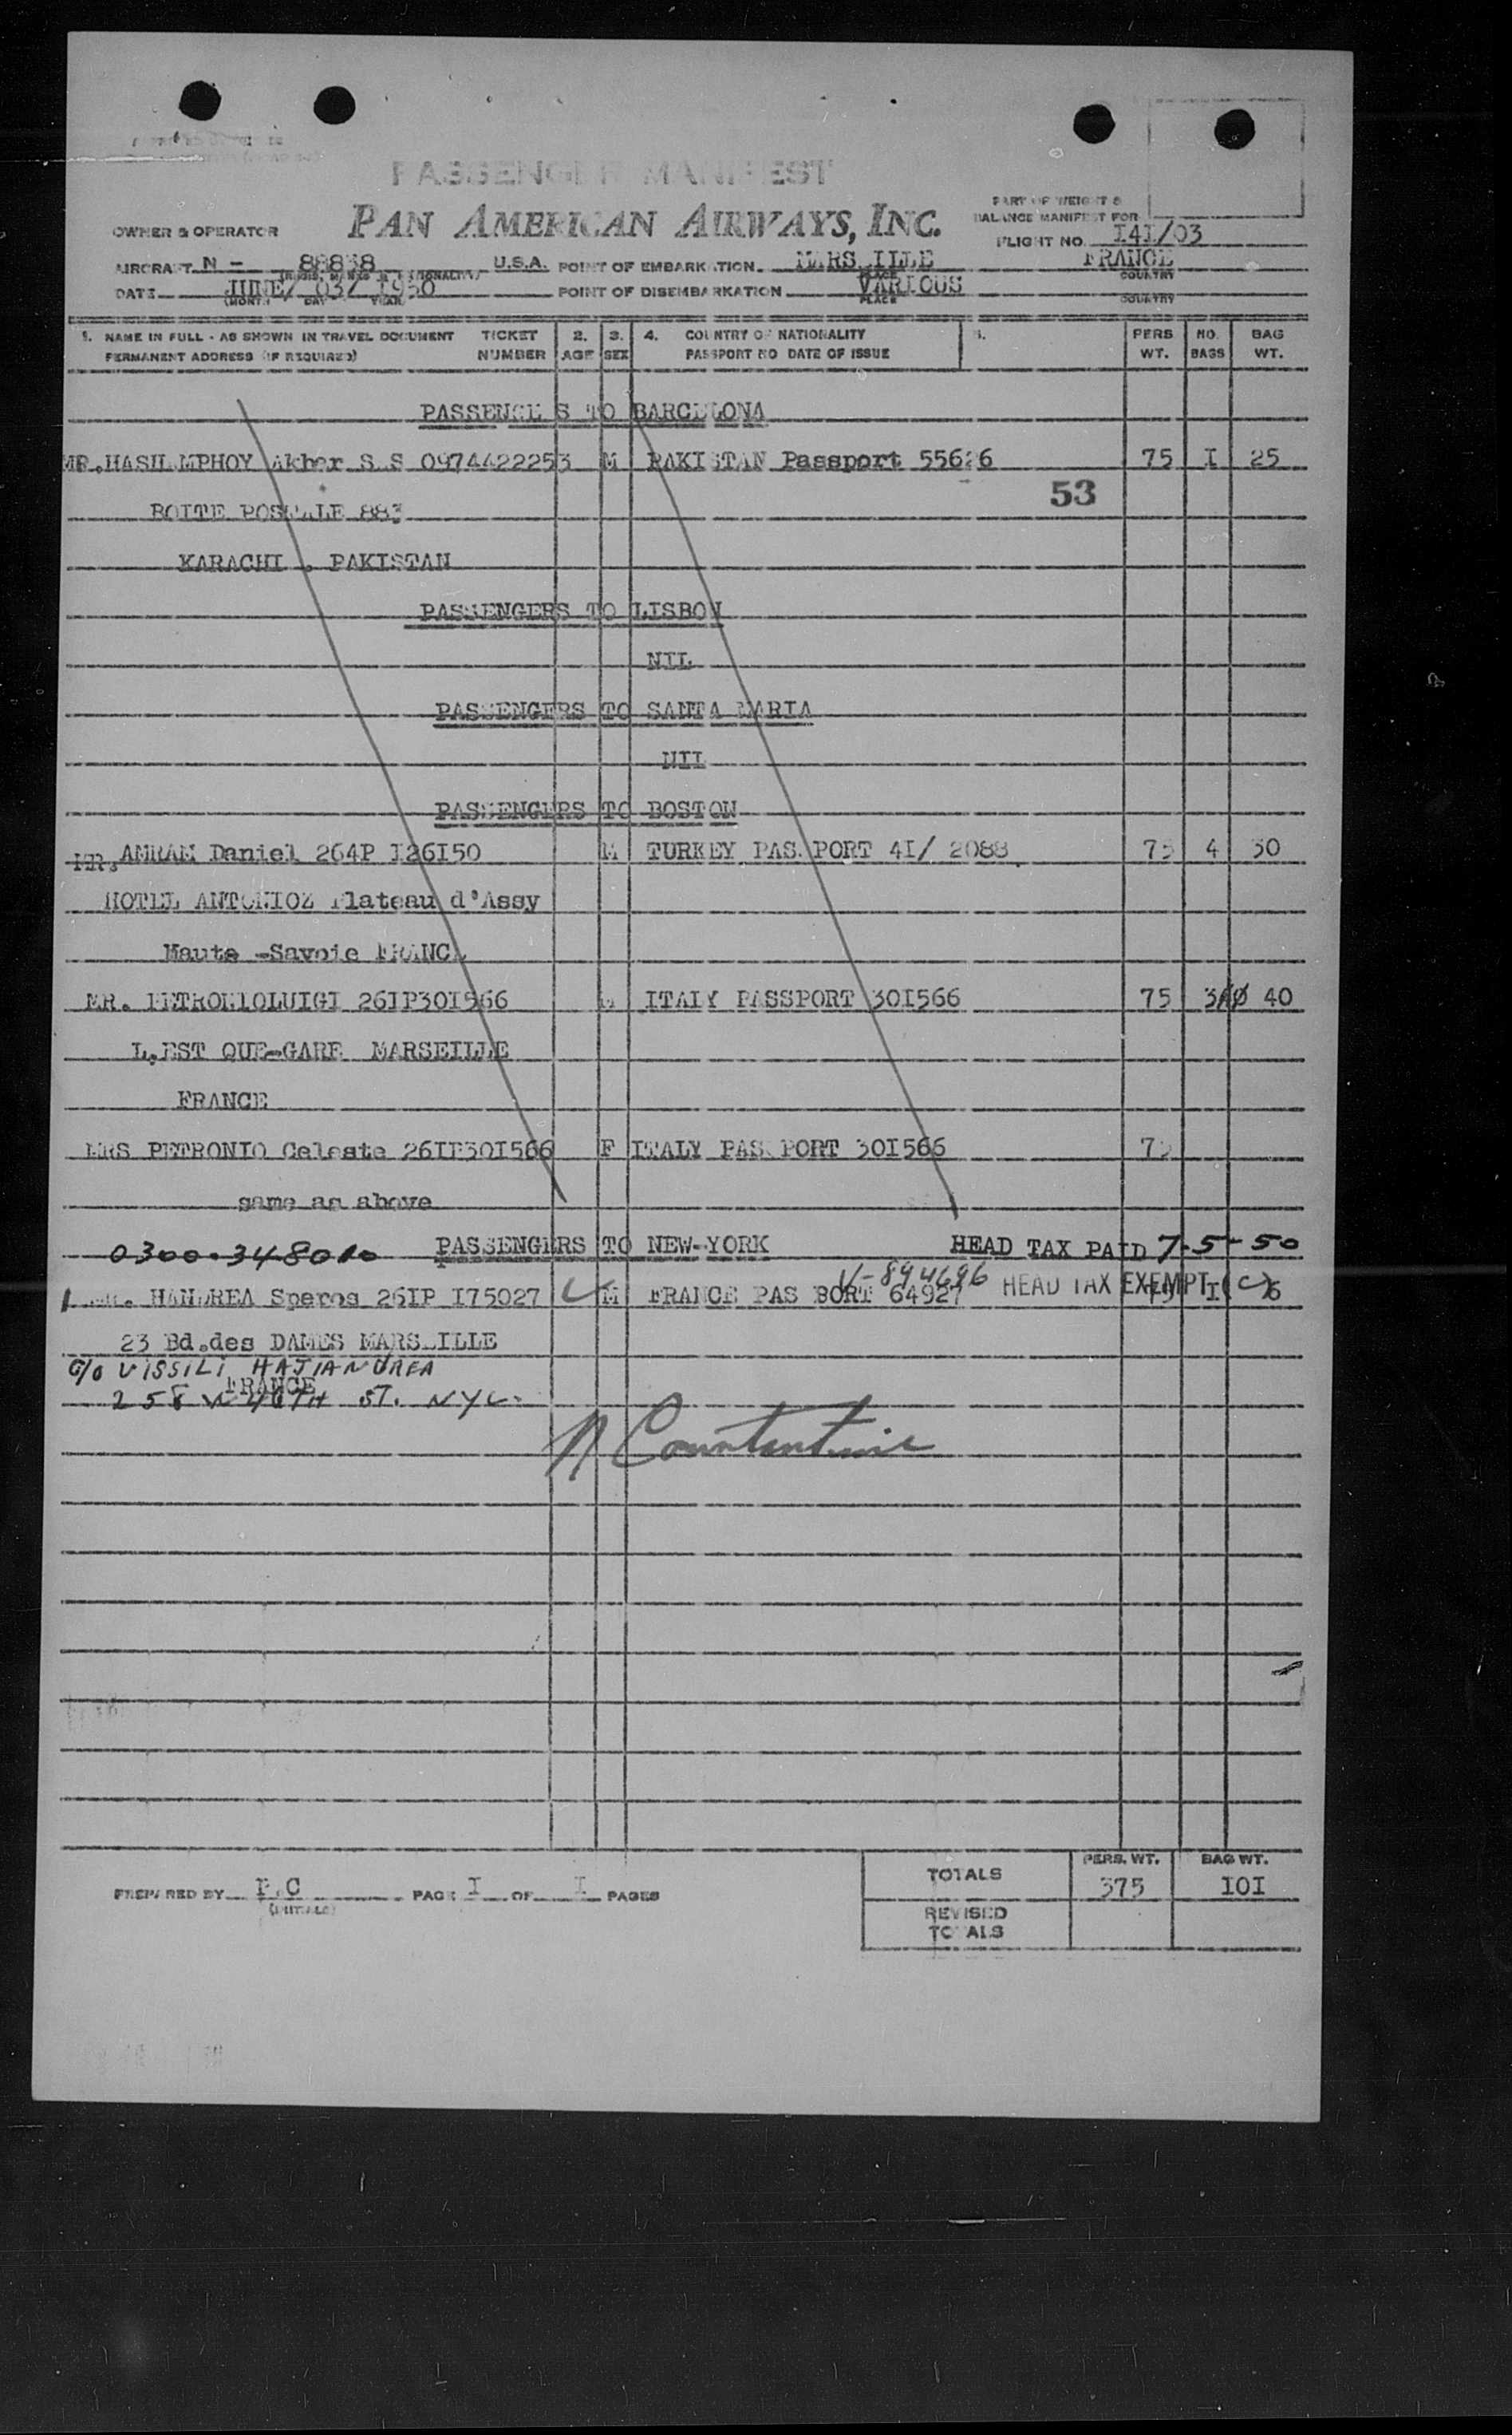 PASSENGER MANIFEST
PAN AMERICAN AIRWAYS, INC.
OWNER & OPERATOR
PART OF WEIGHT &
BALANCE MANIFEST FOR
FLIGHT NO. I4I/03
AIRCRAFT N - 88838 U.S.A. POINT OF EMBARKATION MARSEILLE FRANCE
PLACE COUNTRY
DATE JUNE/ 03/ 1950 POINT OF DISEMBARKATION VARIOUS
(MONTH DAY YEAR PLACE COUNTRY
1. NAME IN FULL - AS SHOWN IN TRAVEL DOCUMENT TICKET 2. 3. 4. COUNTRY OF NATIONALITY 5. PERS NO. BAG
PERMANENT ADDRESS (IF REQUIRED) NUMBER AGE SEX PASSPORT NO DATE OF ISSUE WT. BAGS WT.
PASSENGERS TO BARCELONA
MR. Akber S.S 0974422253 M PAKISTAN Passport 75 I 25
53
BOITE POSTALE 883
KARACHI . PAKISTAN
PASSENGERS TO LISBON
NIL
PASSENGERS TO SANTA MARIA
NIL
PASSENGERS TO BOSTON
MR. AMRAM Daniel 264P I26I50 M TURKEY PASSPORT 4I/ 2088 75 4 30
HOTEL ANTONIOZ Plateau d'Assy
Haute -Savoie FRANCE
MR. PETRONIOLUIGI 26IP30I566 M ITALY PASSPORT 30I566 75 3 40
L.EST QUE-GARE MARSEILLE
FRANCE
MRS PETRONIO Celeste 26IP30I566 F ITALY PASSPORT 30I566 75
same as above
PASSENGERS TO NEW-YORK HEAD TAX PAID 7-5-50
V-894696 HEAD TAX EXEMPT (C)
1 MR. HANDREA Speros 26IP I75027 M FRANCE PASSPORT 64927 75 I 6
23 Bd.des DAMES MARSEILLE
C/o VISSILI HAJIANDREA
FRANCE
258 W 46TH ST. NYC.
PREPARED BY P.C PAGE I OF I PAGES
(INITIALS)
TOTALS PERS. WT. 375 BAG WT. IOI
REVISED
TOTALS